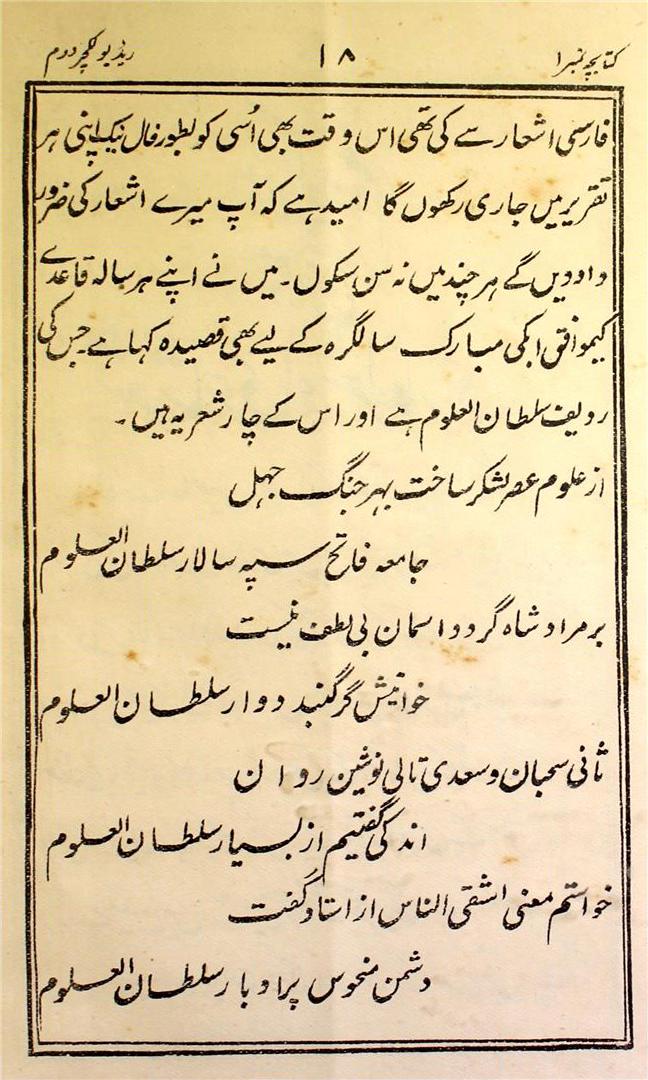 کتابچہ نمبر ۱ ۱۸ ریڈیو لکچر دوم
فارسی اشعار سے کی تھی اس وقت بھی اُسی کو لبطور فال نیک اپنی ہر
تقریر میں جاری رکھوں گا امید ہے کہ آپ میرے اشعار کی ضرور
داد دیں گے ہر چند میں نہ سن سکوں۔ میں نے اپنے ہر سالہ قاعدے
کیموافق ابکی مبارک سالگرہ کے لیے بھی قصیدہ کہا ہے۔ جس کی
ردیف سلطان العلوم ہے اور اس کے چار شعر یہ ہیں۔
از علوم عصر لشکر ساخت بہر جنگ جہل
جامعہ فاتح سپہ سالار سلطان العلوم
بر مراد شاہ گردد اسمان بی لطف نیست
خوانیش گر گنبد دوار سلطان العلوم
ثانی سحبان و سعدی تالی نوشین روان
اندکی گفتیم از بسیار سلطان العلوم
خواستم معنی اشقی الناس از استاد گفت
دشمن منحوس پر ادبار سلطان العلوم